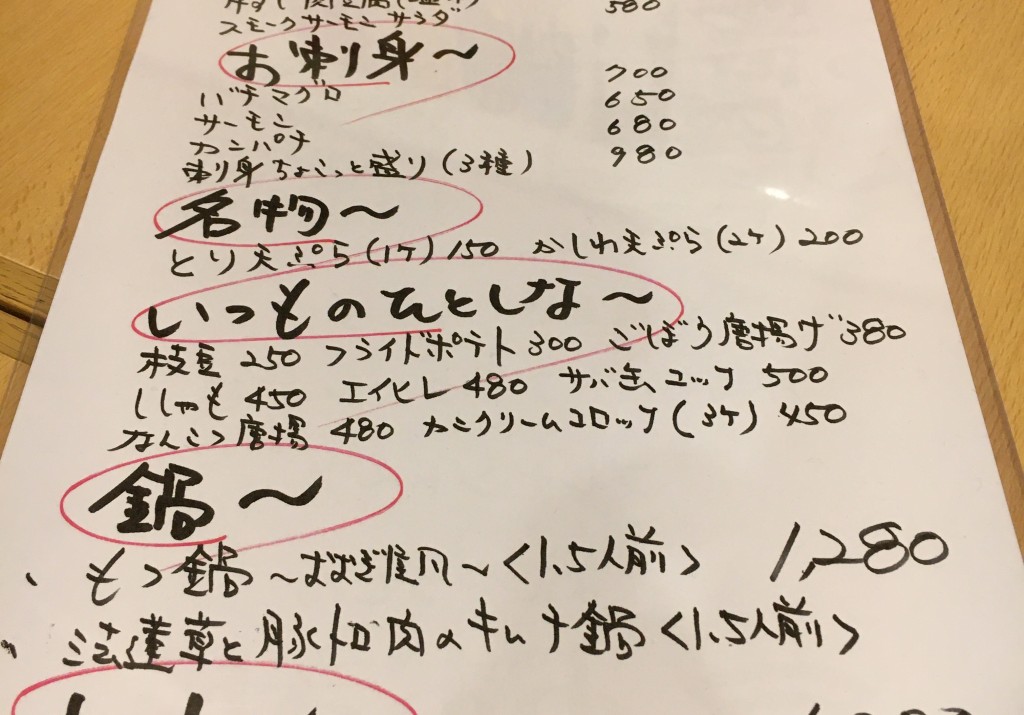 580
スモークサーモンサラダ
お刺身～
バチマグロ 700
サーモン 650
カンパチ 680
刺身ちょこっと盛り(3種) 980
名物～
とり天ぷら(1ケ)150 かしわ天ぷら(2ケ)200
いつものひとしな～
枝豆 250 フライドポテト 300 ごぼう唐揚げ 380
ししゃも 450 エイヒレ 480 サバ缶ユッケ 500
なんこつ唐揚 480 カニクリームコロッケ(3ケ) 450
鍋～
、もつ鍋 <1.5人前> 1,280
、法蓮草と豚トロ肉のキムチ鍋<1.5人前>